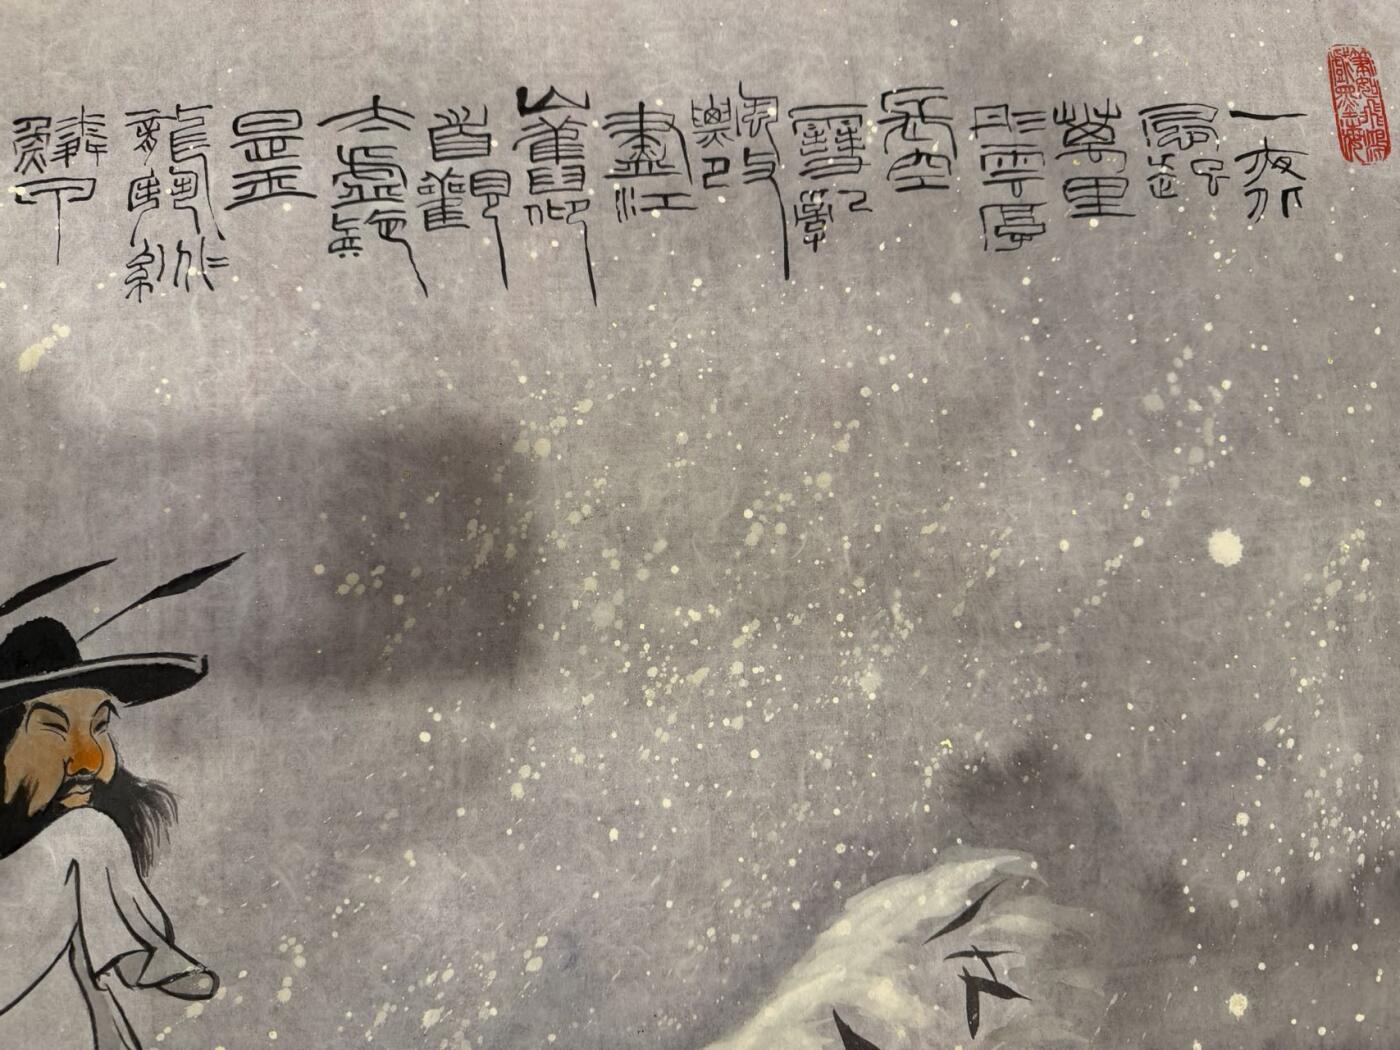 一夜北
風起
萬里
彤雲厚
長空
雪亂
飄改
盡江
山舊仰
面觀
太虛疑
是玉
龍鬥紛〻
鱗甲